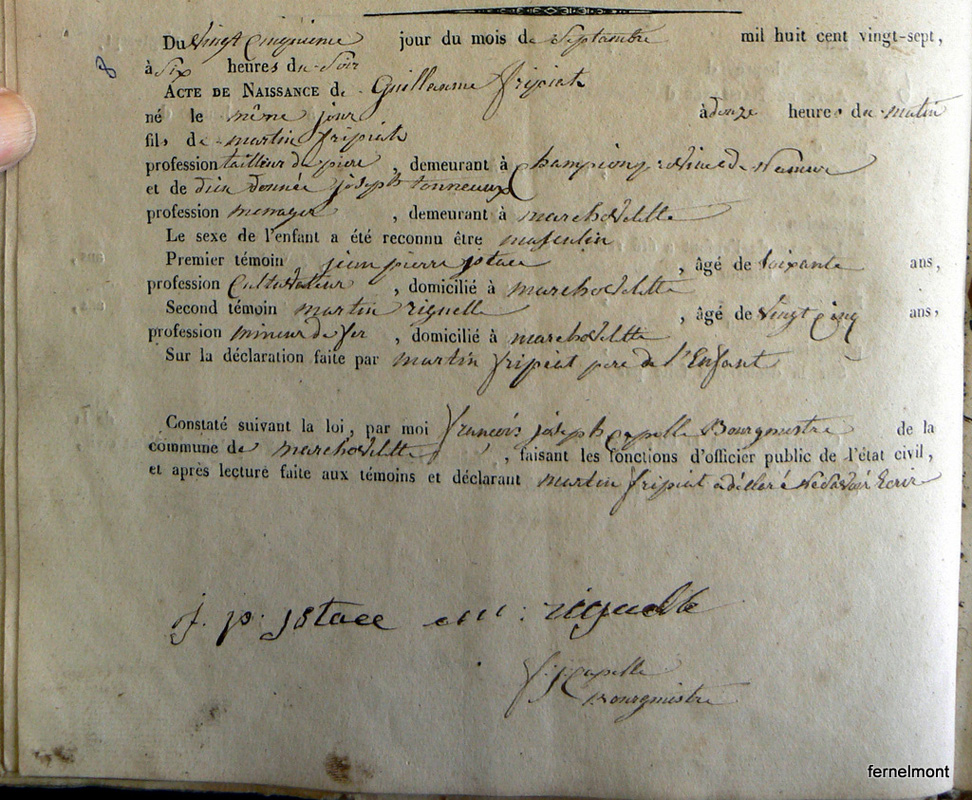 Du Vingt Cinquieme jour du mois de Septembre mil huit cent vingt-sept,
8
à Six heures du Soir
ACTE DE NAISSANCE de Guillaume fripiat
né le même jour à douze heures du matin
fils de martin fripiat
profession tailleur de piere, demeurant à Champion de Namur
et de dieu donnée joseph tonneaux
profession menager, demeurant à marchovelette
Le sexe de l'enfant a été reconnu être masculin
Premier témoin jean pierre jstace, âgé de soixante ans,
profession Cultivateur, domicilié à marchovelette
Second témoin martin riguelle, âgé de Vingt Cinq ans,
profession mineur de fer, domicilié à marchovelette
Sur la déclaration faite par martin fripiat pere de l'Enfant
Constaté suivant la loi, par moi françois joseph Capelle Bourgmestre de la
commune de marchovelette, faisant les fonctions d'officier public de l'état civil,
et après lecture faite aux témoins et déclarant martin fripiat a déclaré ne savoir Ecrir
j. p. jstace m: riguelle
f j Capelle
Bourgmestre
fernelmont